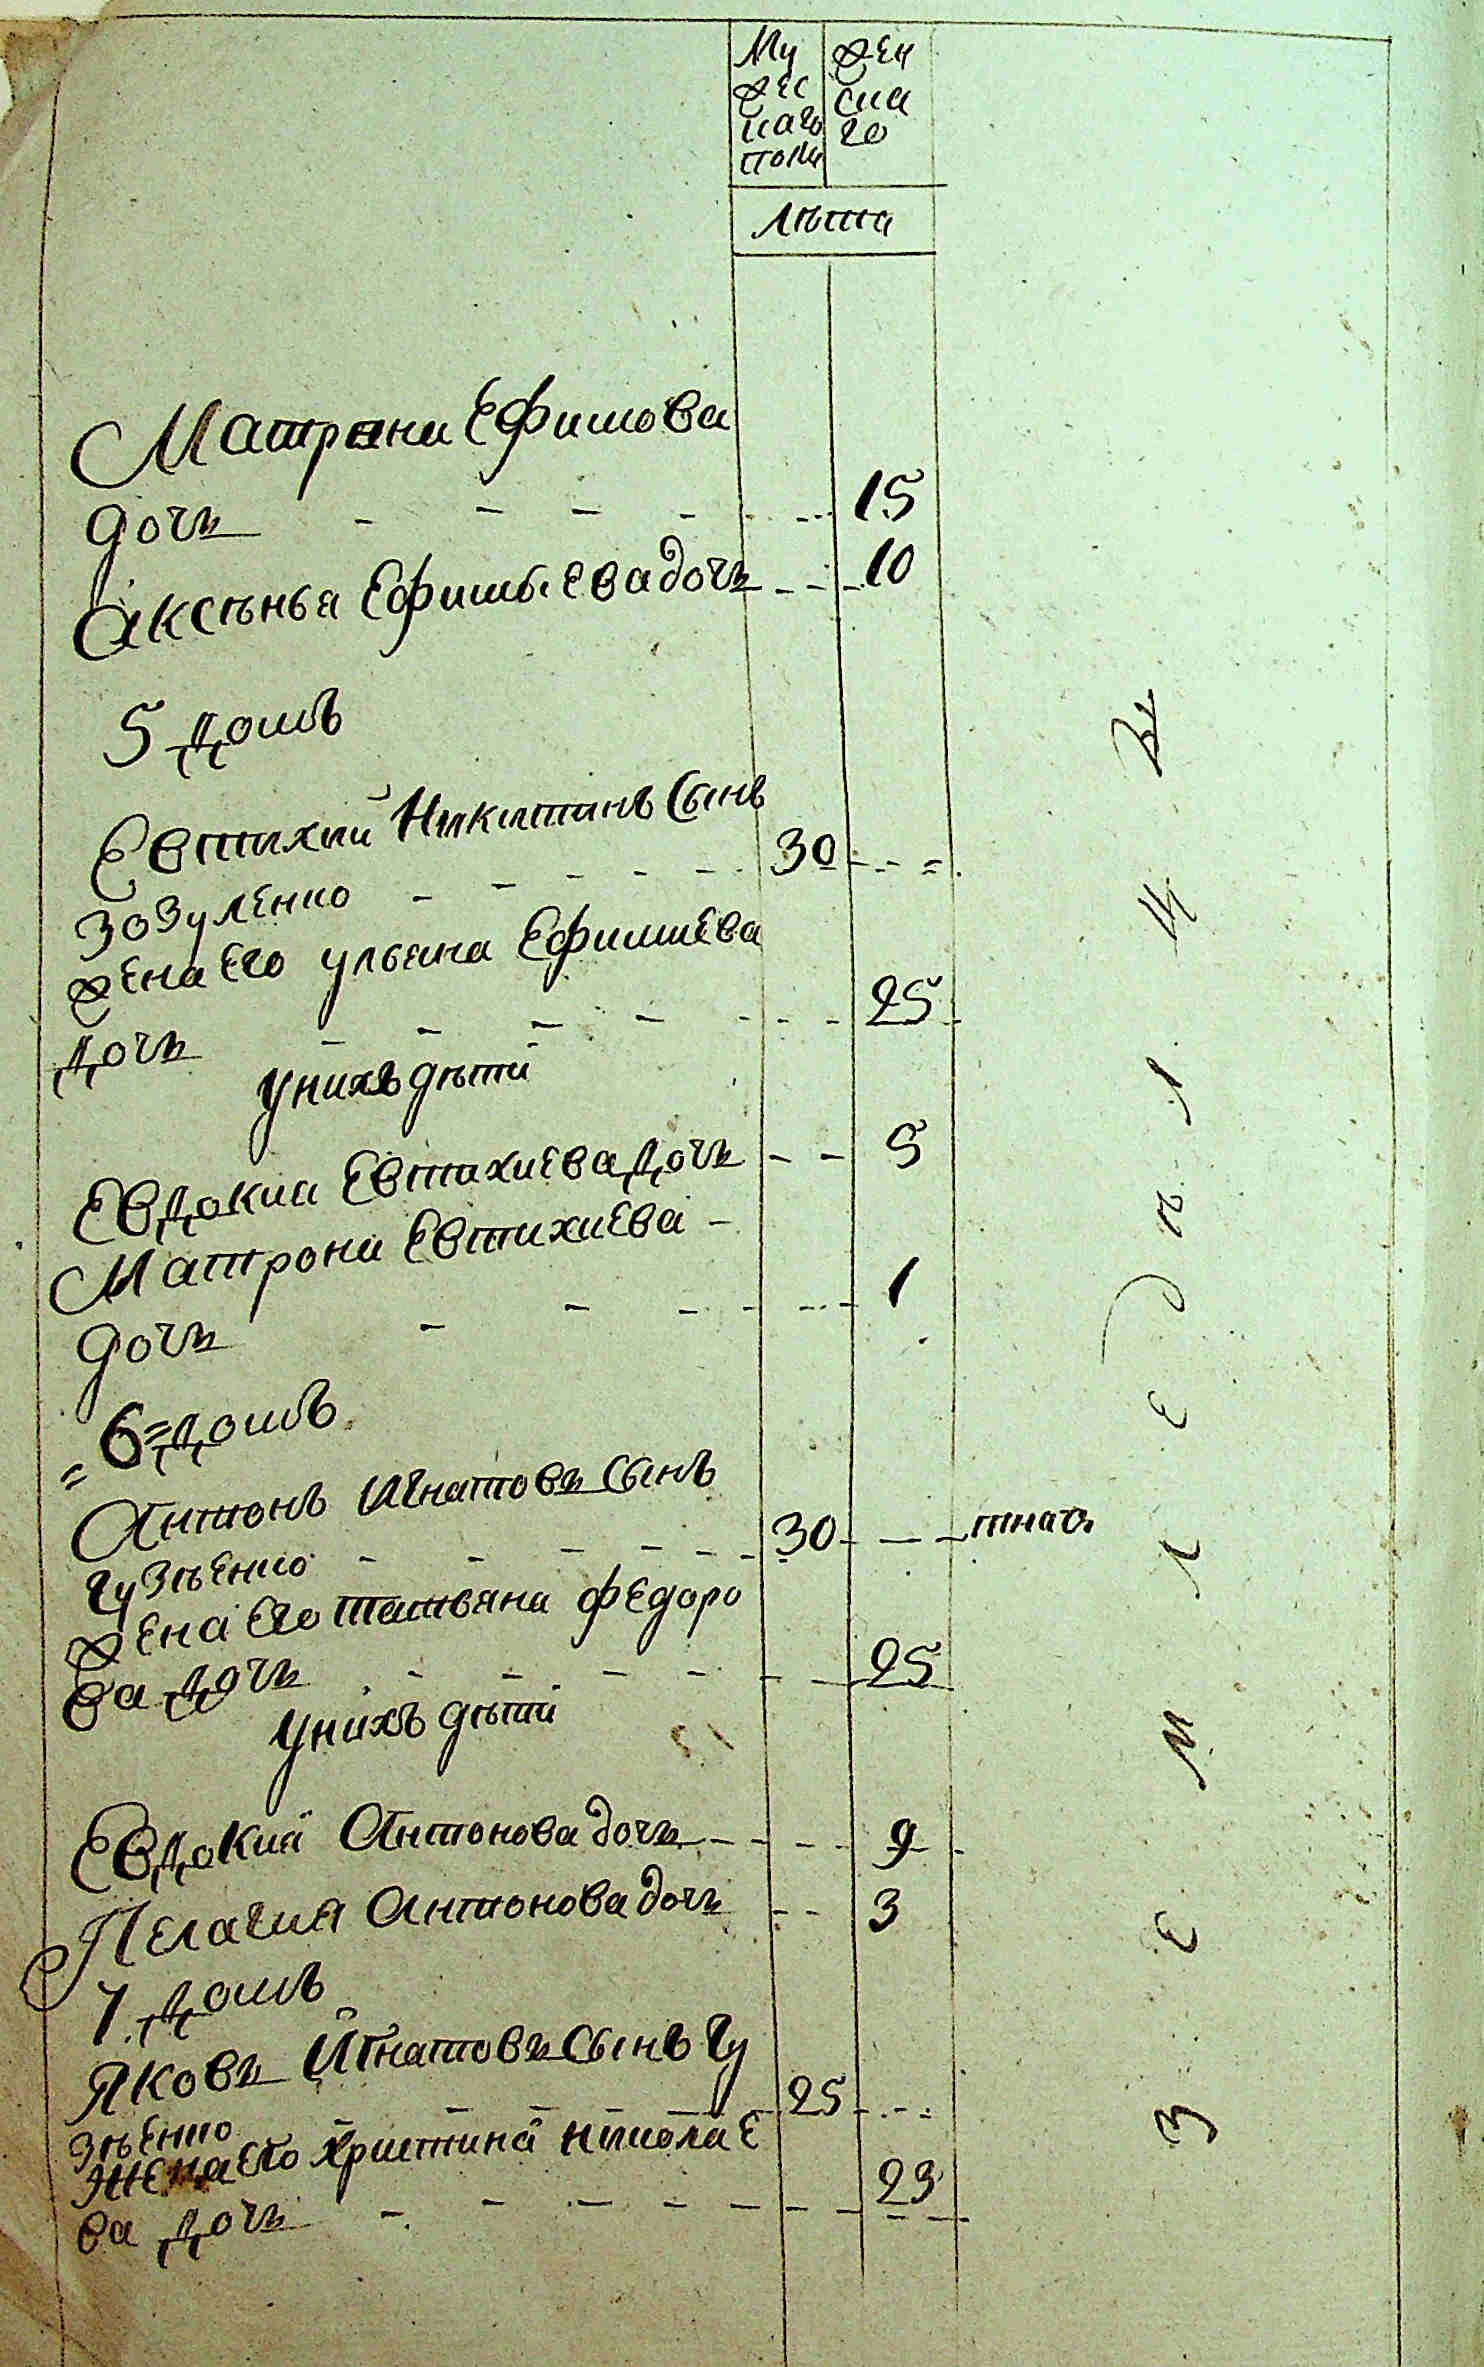 Му
жес
каго
полу
жен
ска
го
лѣта
Матрона Ефимова
дочь 15
Аксѣнья Ефимьева дочь 10
5 домъ
Евтихий Никитинъ сынъ
Зозуленко 30
жена его ульяна Ефимиева
дочь 25
у нихъ дѣти
Евдокиа Евтихиева дочь 5
Матрона Евтихиева
дочь 1
6 домъ
Антонъ Игнатовъ сынъ
Гузѣенко 30 ткачъ
жена его татьяна федоро
ва дочь 25
у нихъ дѣти
Евдокиа Антонова дочь 9
Пелагия Антонова дочь 3
7 домъ
Яковъ Игнатовъ сынъ Гу
зѣенко 25
жена его христина николае
ва дочь 23
земледѣлцы